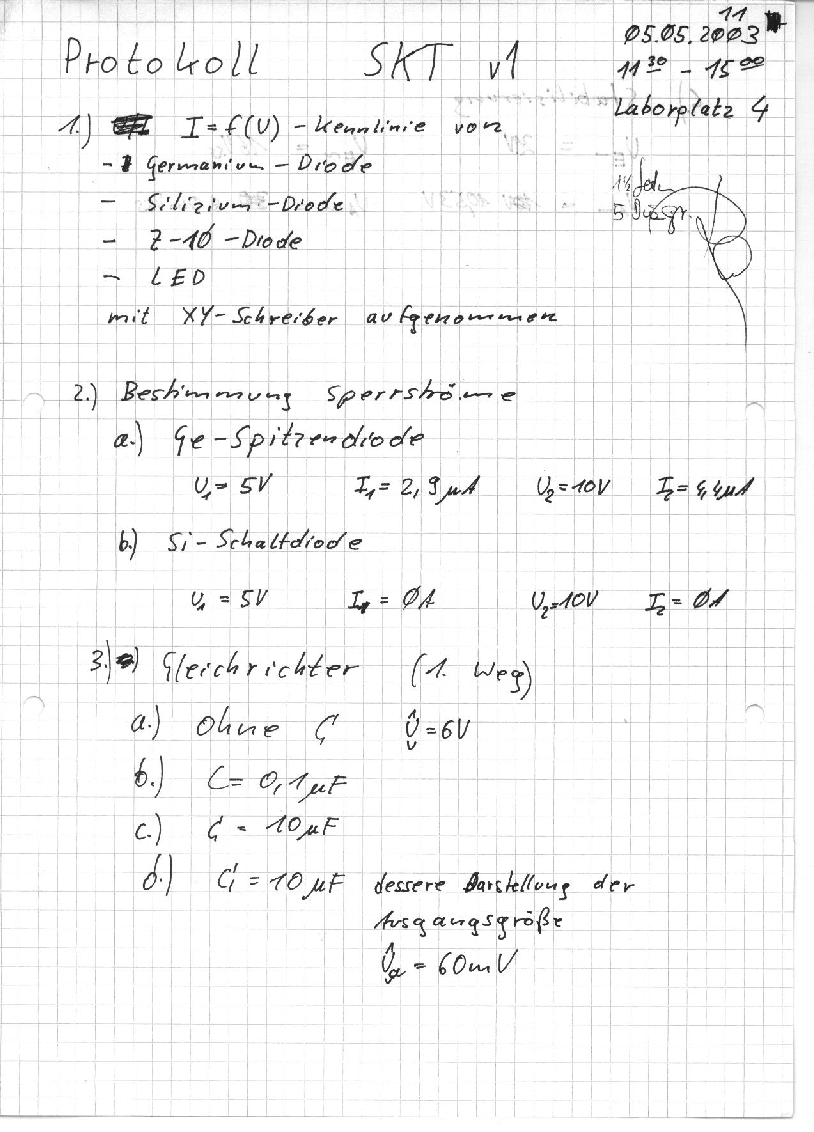 Protokoll SKT v1
11
05.05.2003
11 30 - 15 00
Laborplatz 4
1.) I = f(U) - Kennlinie von
- Germanium - Diode
- Silizium - Diode
- Z-10 - Diode
- LED
mit XY-Schreiber aufgenommen
2.) Bestimmung Sperrströme
a.) Ge-Spitzendiode
U1 = 5V I1 = 2,9 µA U2 = 10V I2 = 4,4 µA
b.) Si-Schaltdiode
U1 = 5V I1 = 0A U2 = 10V I2 = 0A
3.) Gleichrichter (1. Weg)
a.) ohne C Û = 6V
b.) C = 0,1 µF
c.) C = 10 µF
d.) C = 10 µF bessere Darstellung der
Ausgangsgröße
Ûa = 60mV